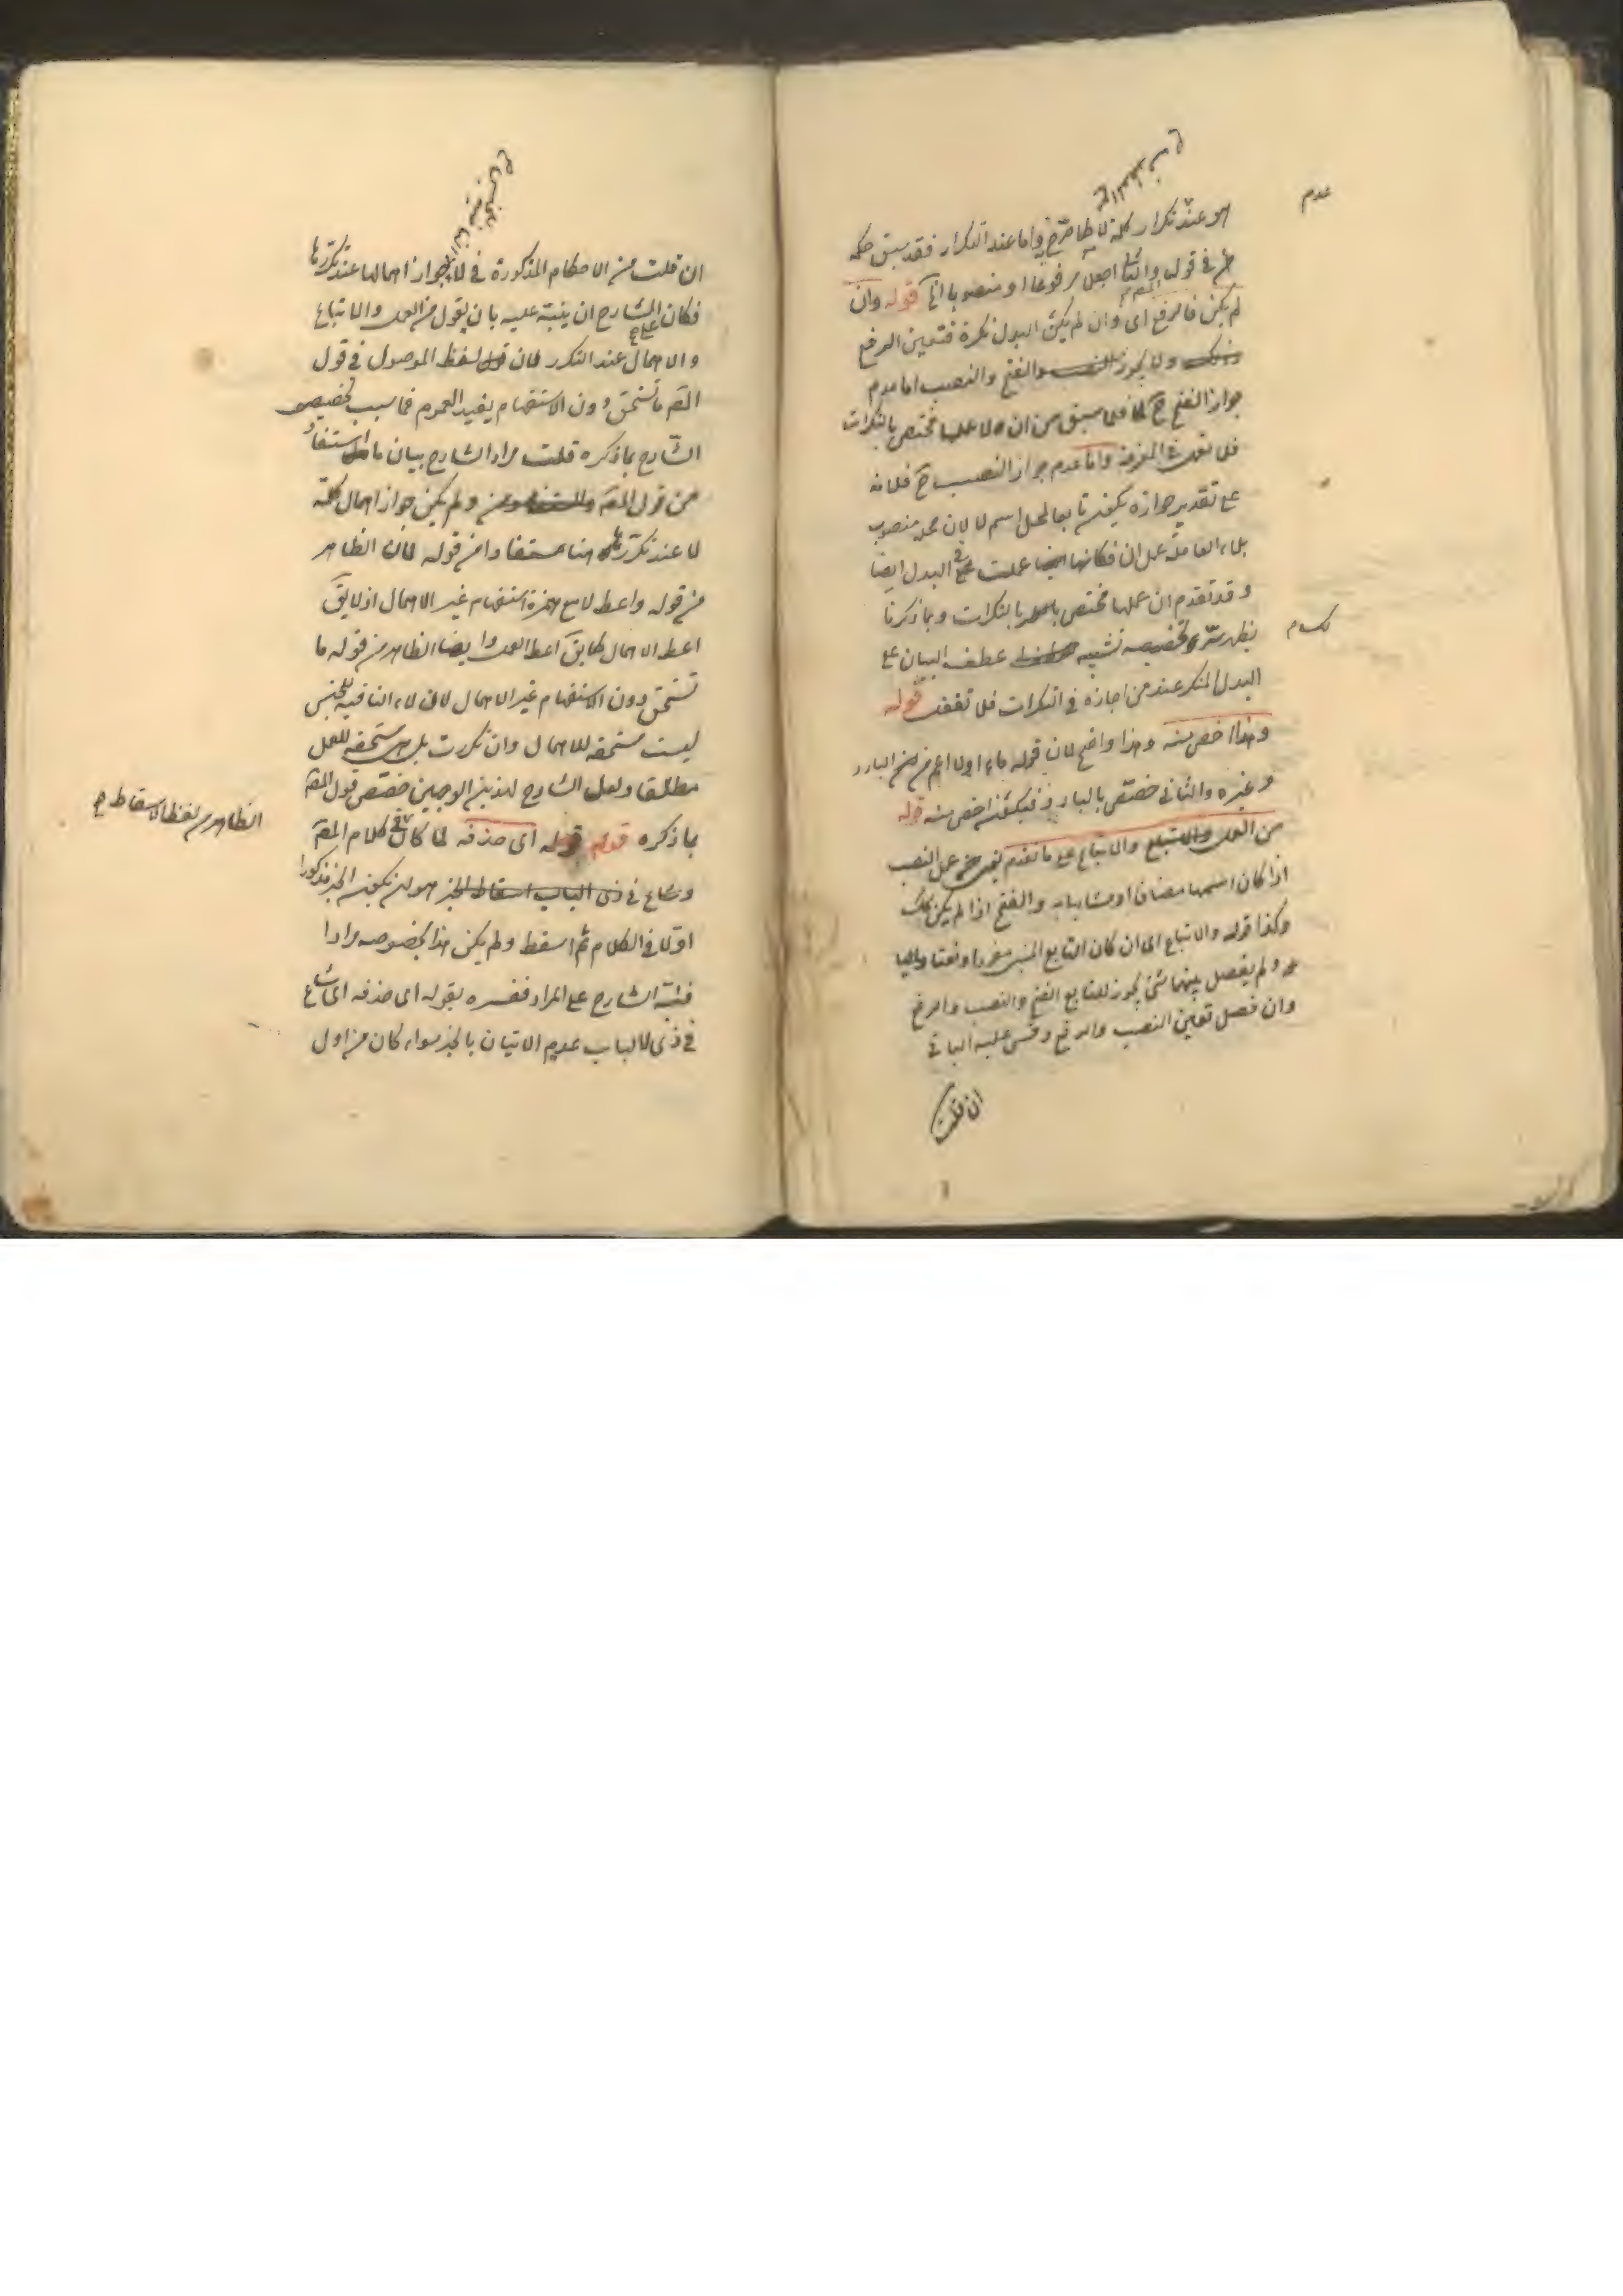 عدم
هو عند تكرار كلمة لا كما صرّح به واما عند التكرار فقد سبق حكمه
في قوله والثاني اجعل مرفوعا او منصوبا الخ قوله وان
لم يكن فالرفع اى وان لم يكن البدل نكرة فتعين الرفع
ولا يجوز الفتح والنصب اما عدم
جواز الفتح ح فلما سبق من ان لا عملها مختص بالنكرات
فلا تعمل فى المعرفة واما عدم جواز النصب ح فلانه
على تقدير جوازه يكون تابعا لمحل اسم لا لان محله منصوب
بلاء العاملة عمل ان فكانها عملت فى البدل ايضا
وقد تقدم ان عملها مختص بالنكرات وبما ذكرنا
يظهر سرّ تخصيصه تشبيه عطف البيان على
كلام
البدل المنكر عند من اجازه فى النكرات فلا تغفل قوله
وهذا اخص منه وهذا واضح لان قوله ماء اولا اعم من البارد
وغيره والثانى خصّص بالبارد فيكون اخص منه قوله
من العمل والاتباع على ما تقدم عمل النصب
اذا كان اسمها مضافا او مشابها به والفتح اذا لم يكن كك
وكذا قوله والاتباع اى ان كان التابع المبنى مفردا ونعتا
ولم يفصل بينهما شئ يجوز للتابع الفتح والنصب والرفع
وان فصل تعين النصب والرفع وقس عليه الباقى
ان قلت
ان قلت من الاحكام المذكورة فى لا جواز اهمالها عند تكررها
فكان على الشارح ان ينبّه عليه بان يقول من العمل والاتباع
والاهمال عند التكرر فان لفظ الموصول فى قول
المصّ ما تستحق دون الاستفهام يفيد العموم فما سبب تخصيص
الشّارح بما ذكره قلت مراد الشارح بيان ما استفاد
من قول المصّ ولم يكن جواز اهمال كلمة
لا عند تكرّرها هنا مستفادا من قوله فان الظاهر
من قوله واعط لا مع همزة استفهام غير الاهمال اذ لا يقّ
اعط الاهمال كما يقّ اعط العمل وايضا الظاهر من قوله ما
تستحق دون الاستفهام غير الاهمال لان لاء النافية للجنس
ليست مستحقة للاهمال وان تكررت بل هى مستحقة للعمل
مطلقا ولعل الشارح لهذين الوجهين خصّص قول المصّ
بما ذكره قوله اى حذفه لما كان فى كلام المصّ
الظاهر من لفظ الاسقاط ح
وشاع فى ذى الباب اسقاط الخبر هو ان يكون الخبر مذكورا
اوّلا فى الكلام ثم اسقط ولم يكن هذا بخصوصه مرادا
فنبّه الشارح على المراد ففسره بقوله اى حذفه اى شاع
فى ذى الباب عدم الاتيان بالخبر سواء كان من اول